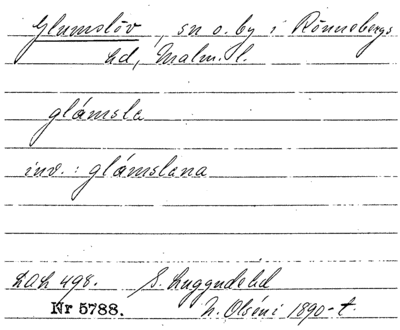 Glumslöv, sn o. by i Rönnebergs
hd, Malm. l.
glámsla
inv.: glámslana
DAL 498. S. Luggude hd
Nr 5788. N. Olséni 1890-t.